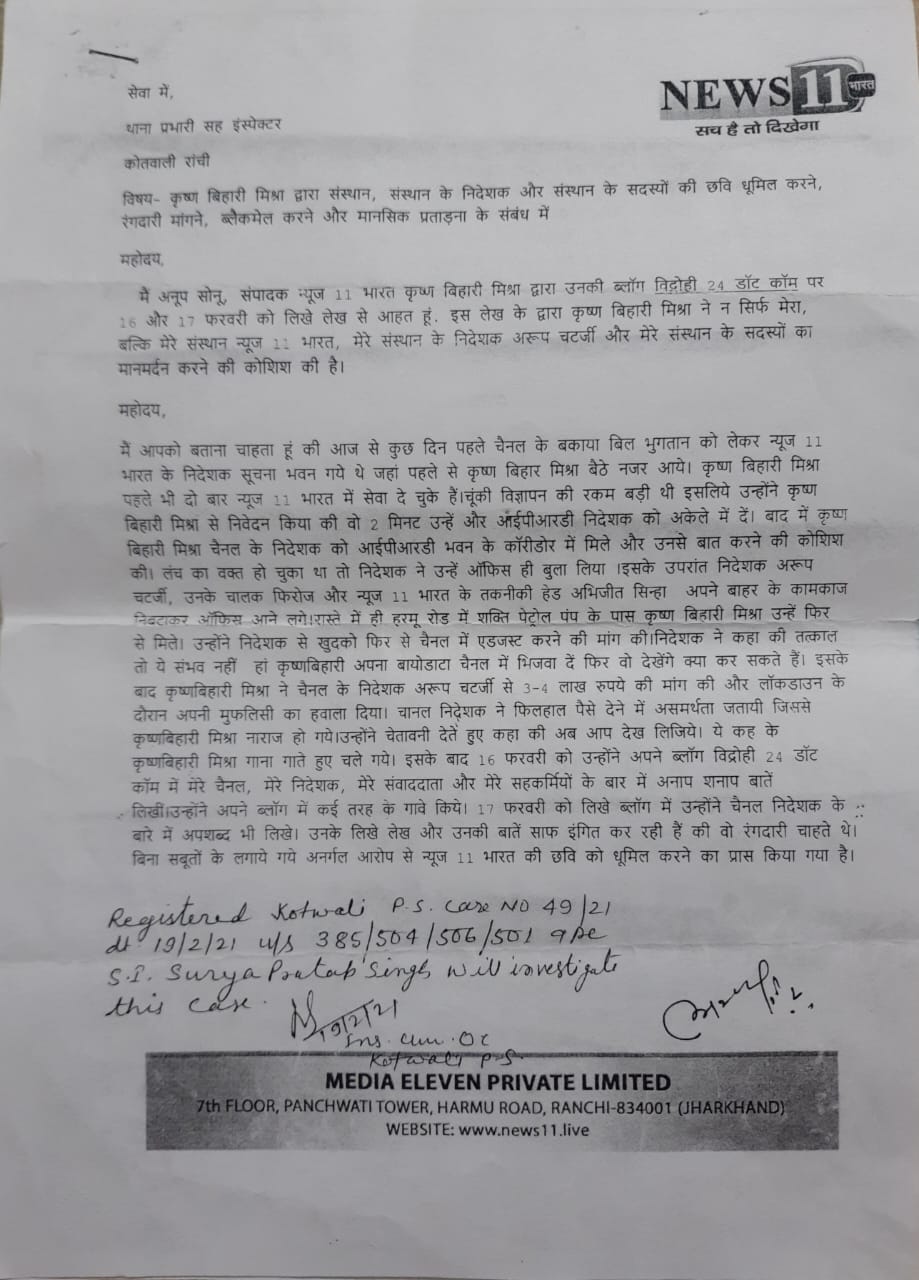 NEWS 11 भारत
सच है तो दिखेगा
सेवा में,
थाना प्रभारी सह इंस्पेक्टर
कोतवाली रांची
विषय- कृष्ण बिहारी मिश्रा द्वारा संस्थान, संस्थान के निदेशक और संस्थान के सदस्यों की छवि धूमिल करने,
रंगदारी मांगने, ब्लैकमेल करने और मानसिक प्रताड़ना के संबंध में
महोदय,
मैं अनूप सोनू, संपादक न्यूज 11 भारत कृष्ण बिहारी मिश्रा द्वारा उनकी ब्लॉग विद्रोही 24 डॉट कॉम पर
16 और 17 फरवरी को लिखे लेख से आहत हूं. इस लेख के द्वारा कृष्ण बिहारी मिश्रा ने न सिर्फ मेरा,
बल्कि मेरे संस्थान न्यूज 11 भारत, मेरे संस्थान के निदेशक अरूप चटर्जी और मेरे संस्थान के सदस्यों का
मानमर्दन करने की कोशिश की है।
महोदय,
मैं आपको बताना चाहता हूं की आज से कुछ दिन पहले चैनल के बकाया बिल भुगतान को लेकर न्यूज 11
भारत के निदेशक सूचना भवन गये थे जहां पहले से कृष्ण बिहार मिश्रा बैठे नजर आये। कृष्ण बिहारी मिश्रा
पहले भी दो बार न्यूज 11 भारत में सेवा दे चुके हैं।चूंकी विज्ञापन की रकम बड़ी थी इसलिये उन्होंने कृष्ण
बिहारी मिश्रा से निवेदन किया की वो 2 मिनट उन्हें और आईपीआरडी निदेशक को अकेले में दें। बाद में कृष्ण
बिहारी मिश्रा चैनल के निदेशक को आईपीआरडी भवन के कॉरीडोर में मिले और उनसे बात करने की कोशिश
की। लंच का वक्त हो चुका था तो निदेशक ने उन्हें ऑफिस ही बुला लिया ।इसके उपरांत निदेशक अरूप
चटर्जी, उनके चालक फिरोज और न्यूज 11 भारत के तकनीकी हेड अभिजीत सिन्हा अपने बाहर के कामकाज
निबटाकर ऑफिस आने लगे।रास्ते में ही हरमू रोड में शक्ति पेट्रोल पंप के पास कृष्ण बिहारी मिश्रा उन्हें फिर
से मिले। उन्होंने निदेशक से खुदको फिर से चैनल में एडजस्ट करने की मांग की।निदेशक ने कहा की तत्काल
तो ये संभव नहीं हां कृष्णबिहारी अपना बायोडाटा चैनल में भिजवा दें फिर वो देखेंगे क्या कर सकते हैं। इसके
बाद कृष्णबिहारी मिश्रा ने चैनल के निदेशक अरूप चटर्जी से 3-4 लाख रुपये की मांग की और लॉकडाउन के
दौरान अपनी मुफलिसी का हवाला दिया। चानल निदेशक ने फिलहाल पैसे देने में असमर्थता जतायी जिससे
कृष्णबिहारी मिश्रा नाराज हो गये।उन्होंने चेतावनी देते हुए कहा की अब आप देख लिजिये। ये कह के
कृष्णबिहारी मिश्रा गाना गाते हुए चले गये। इसके बाद 16 फरवरी को उन्होंने अपने ब्लॉग विद्रोही 24 डॉट
कॉम में मेरे चैनल, मेरे निदेशक, मेरे संवाददाता और मेरे सहकर्मियों के बार में अनाप शनाप बातें
लिखीं।उन्होंने अपने ब्लॉग में कई तरह के गावे किये। 17 फरवरी को लिखे ब्लॉग में उन्होंने चैनल निदेशक के
बारे में अपशब्द भी लिखे। उनके लिखे लेख और उनकी बातें साफ इंगित कर रही हैं की वो रंगदारी चाहते थे।
बिना सबूतों के लगाये गये अनर्गल आरोप से न्यूज 11 भारत की छवि को धूमिल करने का प्रास किया गया है।
Registered Kotwali P.S. Case NO 49/21
dt 19/2/21 u/s 385/504/506/501 IPC
S.I. Surya Pratap Singh will investigate
this case.
Ins. cum. OC
Kotwali P.S.
MEDIA ELEVEN PRIVATE LIMITED
7th FLOOR, PANCHWATI TOWER, HARMU ROAD, RANCHI-834001 (JHARKHAND)
WEBSITE: www.news11.live